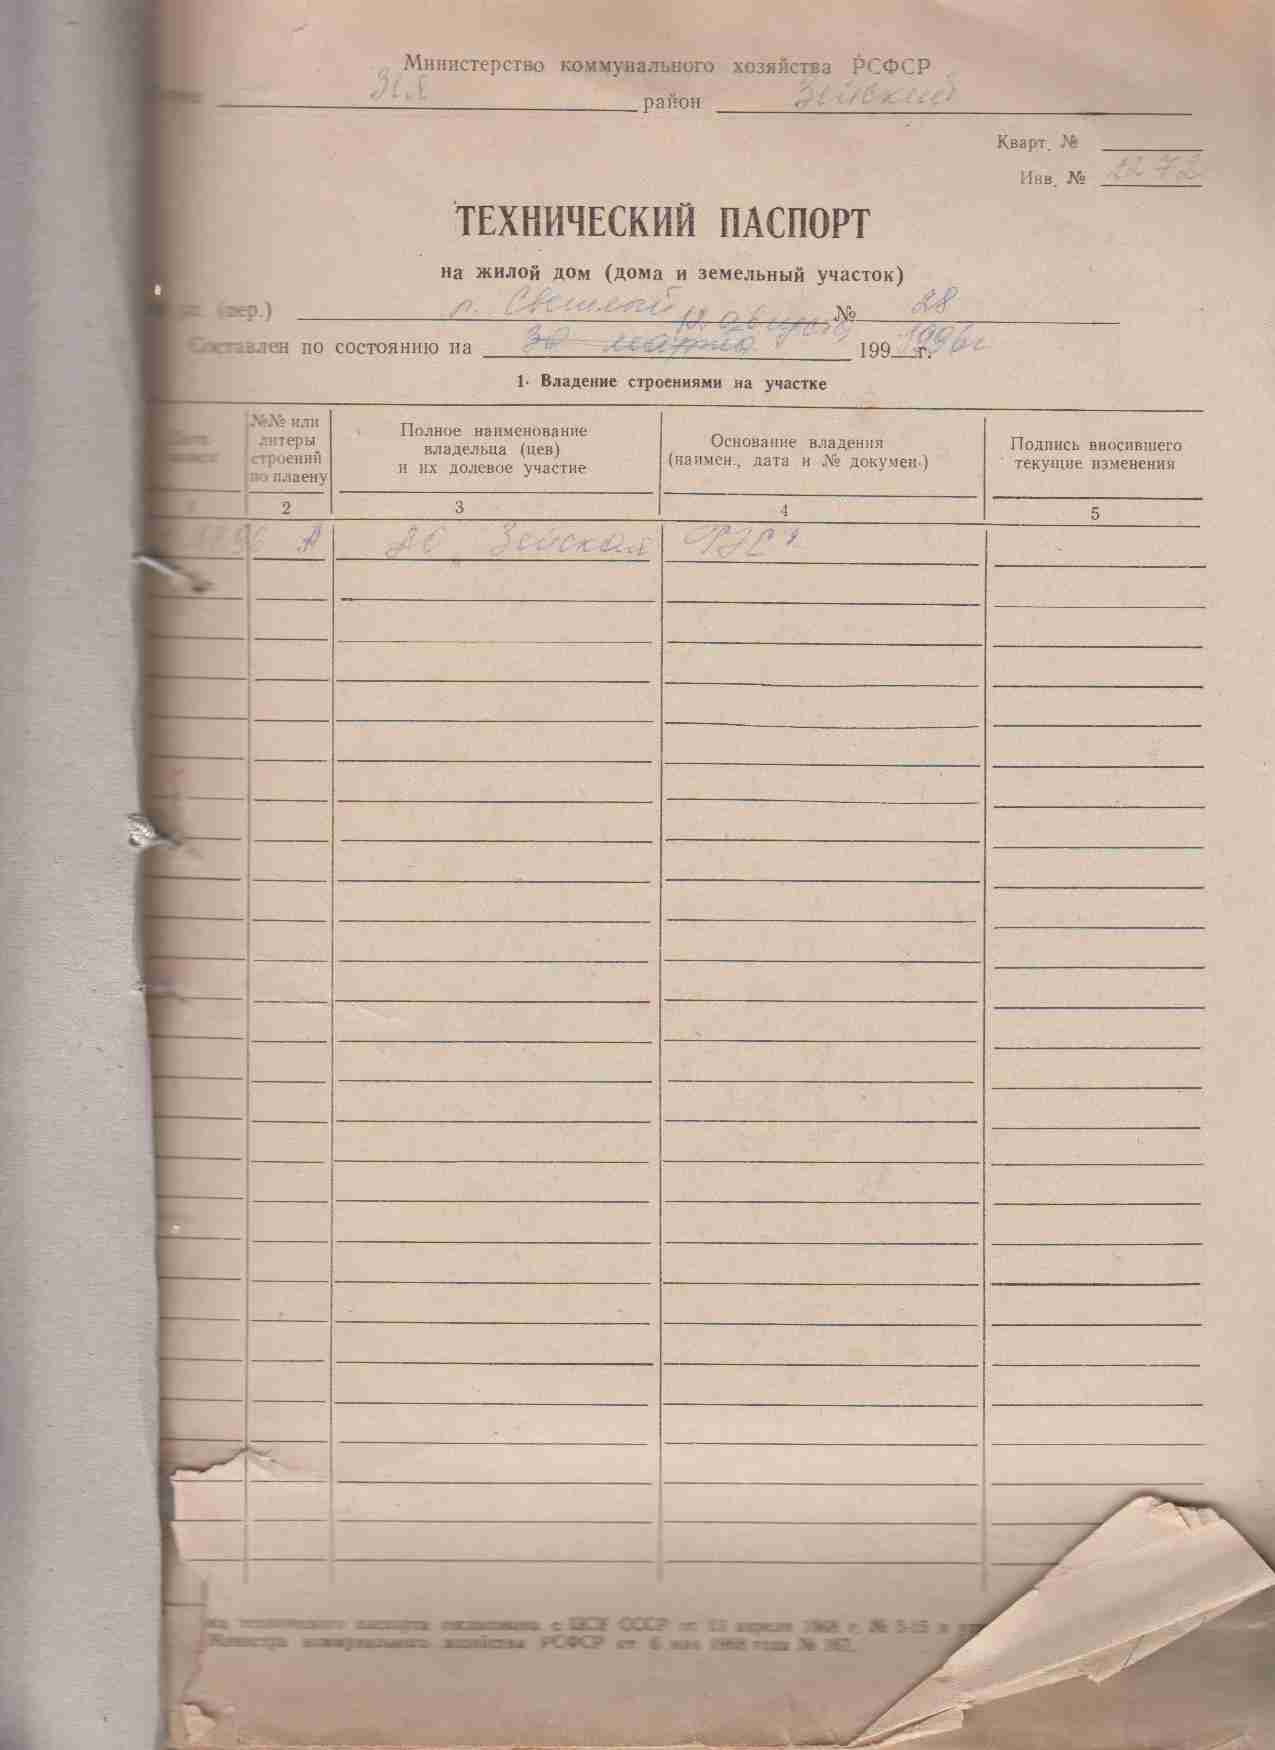 Министерство коммунального хозяйства РСФСР
Зея район Зейский
Кварт. №
Инв. № 2272
ТЕХНИЧЕСКИЙ ПАСПОРТ
на жилой дом (дома и земельный участок)
(пер.) п. Светлый № 28
12 августа
Составлен по состоянию на 30 марта 199 г. 1996г
1. Владение строениями на участке
№№ или литеры строений по плаену
Полное наименование владельца (цев) и их долевое участие
Основание владения (наимен., дата и № докумен.)
Подпись вносившего текущие изменения
1 2 3 4 5
96 А АО „Зейская ГЭС"
на технического паспорта согласована с ЦСУ СССР от 13 апреля 1968 г. № 5-15 и
Министра коммунального хозяйства РСФСР от 6 мая 1968 года № 162.